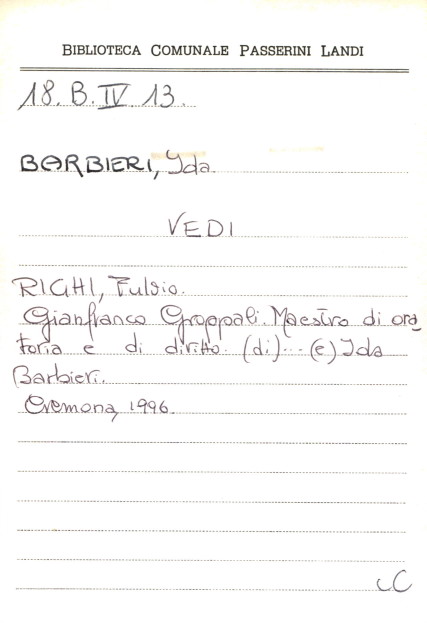 BIBLIOTECA COMUNALE PASSERINI LANDI
18. B. IV 13.
BARBIERI, Ida
VEDI
RIGHI, Fulvio.
Gianfranco Groppali. Maestro di ora
toria e di diritto. (di)... (e) Ida
Barbieri.
Cremona, 1996.
CC